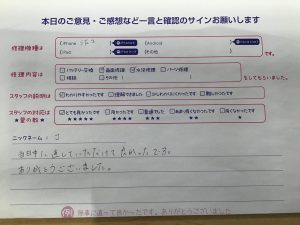 本日のご意見・ご感想など一言と確認のサインお願いします
修理機種は
iPhone
Android
iPad
その他
修理内容は
バッテリー交換 画面修理 水没修理 パーツ修理
相談 その他
をしてもらいました。
スタッフの説明は
わかりやすかった 理解できました 難しかった
スタッフの対応は
とても良かった 良かった 普通でした 良くなかった
★星の数★
★★★★★ ★★★★ ★★★ ★★ ★
ニックネーム:
当日中に直していただけて良かったです。
ありがとうございました。
例 無事に直って良かったです。ありがとうございました